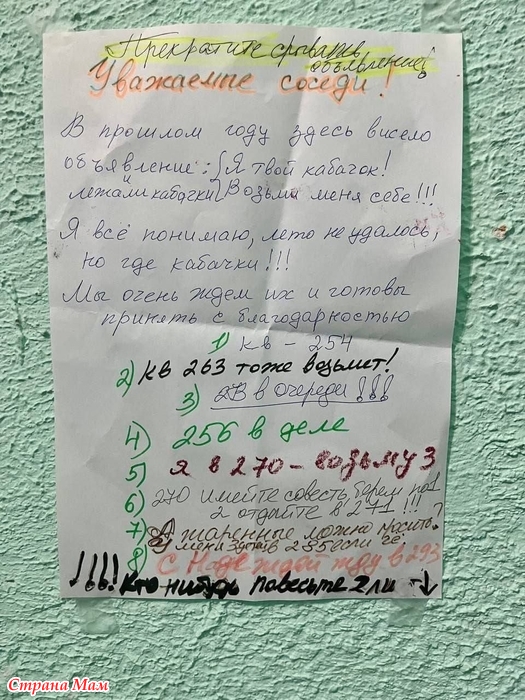 Прекратите срывать
объявление!
Уважаемые соседи!
В прошлом году здесь висело
объявление: Я твой кабачок!
лежали кабачки Возьми меня себе!!!
Я всё понимаю, лето не удалось,
но где кабачки!!!
Мы очень ждем их и готовы
принять с благодарностью
1) кв - 254
2) кв 263 тоже возьмет!
3) в очереди!!!
4) 256 в деле
5) я в 270 - возьму 3
6) 270 имейте совесть берем по 1
2 отдайте в 271!!!
7) А жаренные можно носить?
У меня в 255 если че.
8) С Надеждой жду в 293
!!!! Кто нибудь повесьте 2 ли
Страна Мам